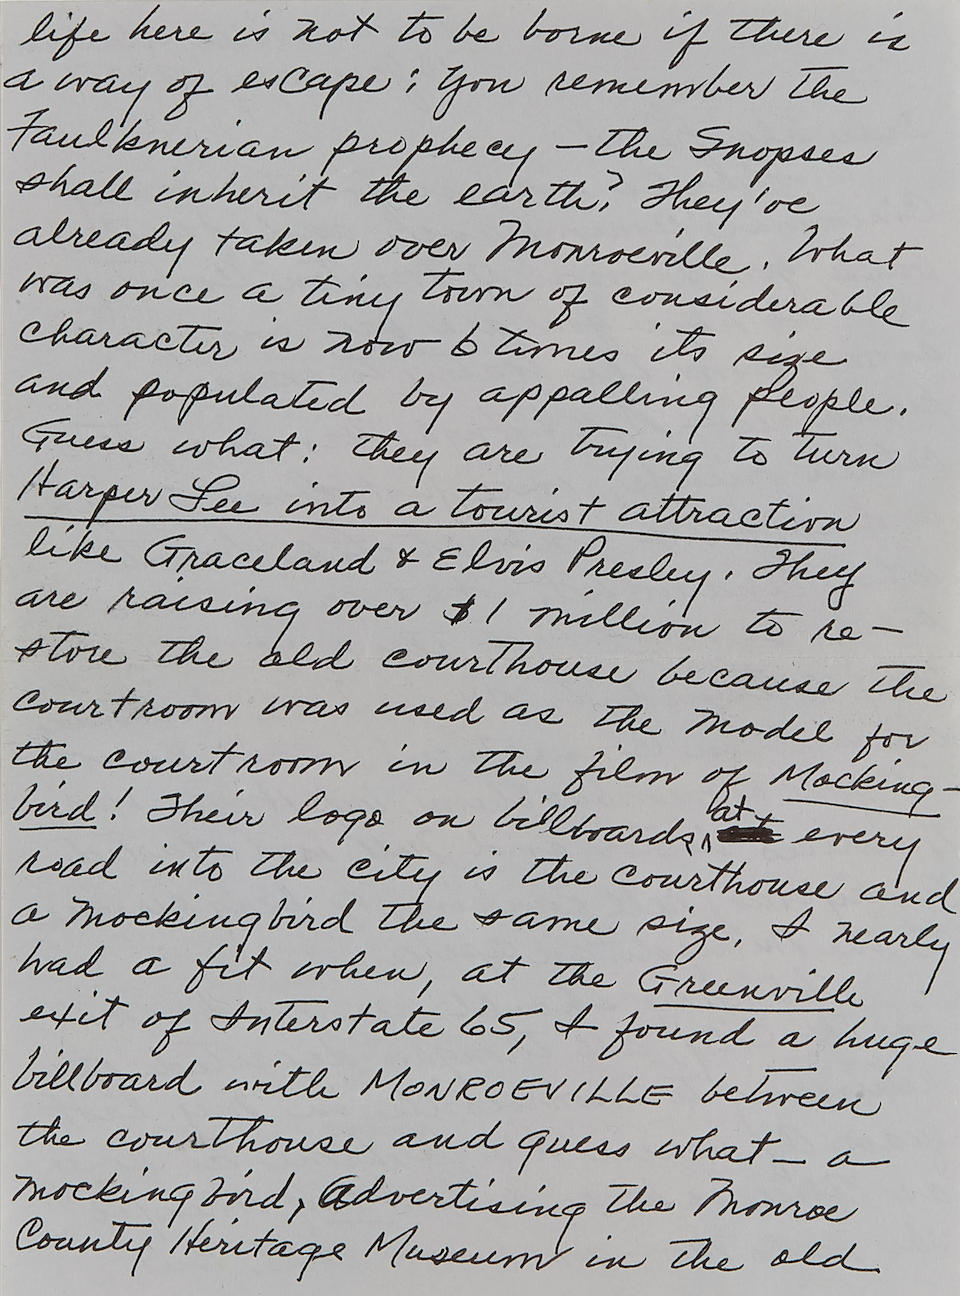 life here is not to be borne if there is
a way of escape: you remember the
Faulknerian prophecy — the Snopses
shall inherit the earth? They've
already taken over Monroeville. What
was once a tiny town of considerable
character is now 6 times its size
and populated by appalling people.
Guess what: they are trying to turn
Harper Lee into a tourist attraction
like Graceland & Elvis Presley. They
are raising over $1 million to re-
store the old courthouse because the
courtroom was used as the model for
the courtroom in the film of Mocking-
bird! Their logo on billboards, at every
road into the city is the courthouse and
a mockingbird the same size. I nearly
had a fit when, at the Greenville
exit of Interstate 65, I found a huge
billboard with MONROEVILLE between
the courthouse and guess what — a
mockingbird, advertising the Monroe
County Heritage Museum in the old